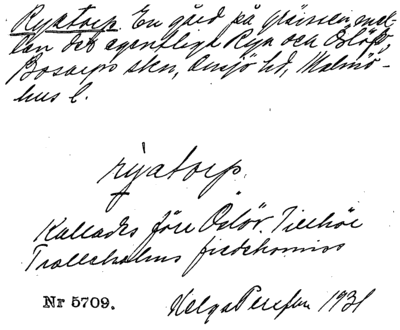 Ryatorp. En gård på gränsen mel-
lan det egentliga Rya och Oslöf,
Bosarps skn, Onsjö hd, Malmö-
hus l.
ryatorp.
Kallades förr Oslöv. Tillhör
Trolleholms fideikomiss
Nr 5709.
Helga 1931